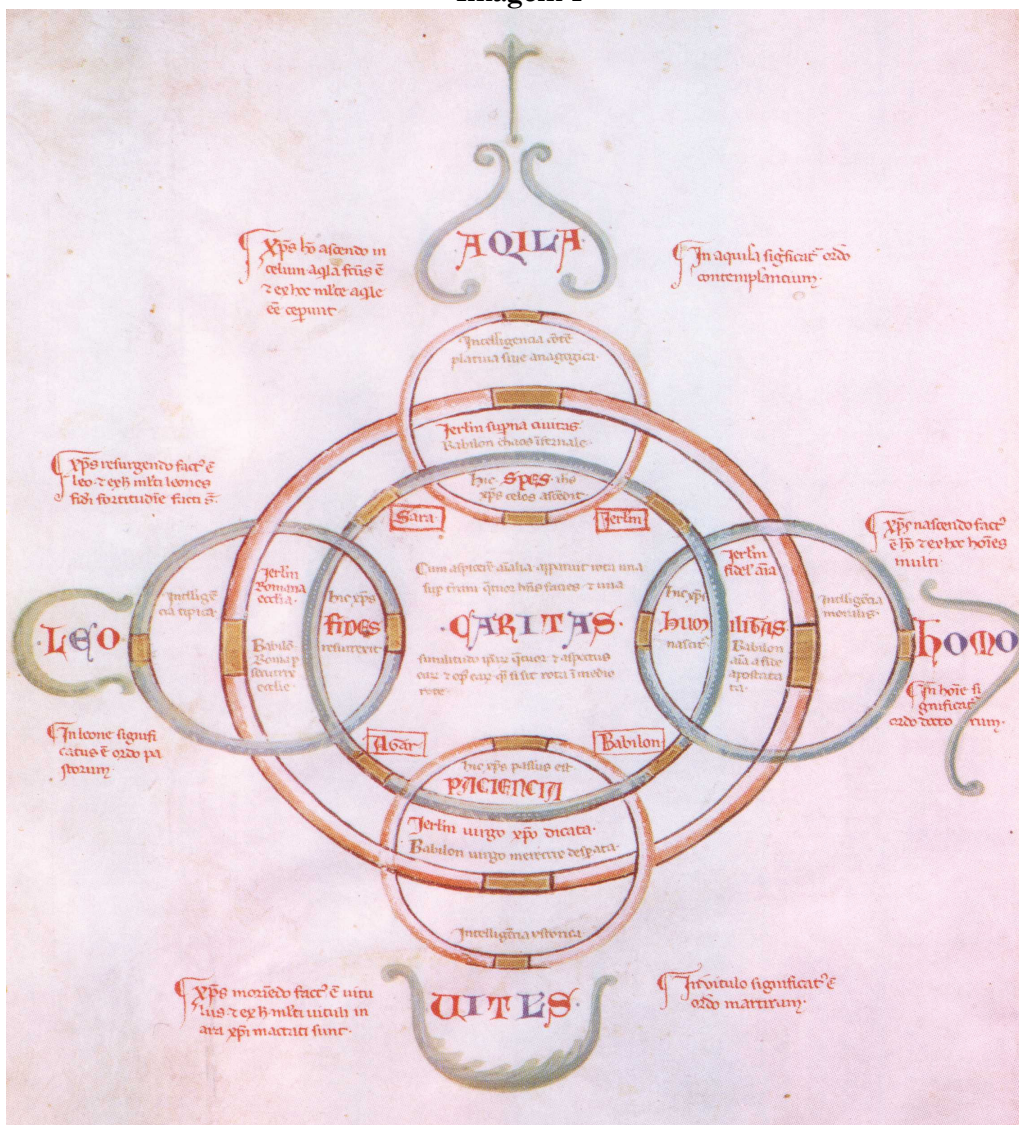 AQILA
Xp̄s hō ascendo in
celum aq̄la fcūs ē
⁊ ex hoc ml̄te aq̄le
cē ceperunt
In aquila sig̃ficat᷑ ordo
contemplancium·
Intelligencia cōtē
platiua siue anagogica·
Jerlm̄ sup̄na ciuitas·
Babilon chaos īfernale·
hic· SPES· ihs
xp̄s celos ascendit·
Sara
Jerlm̄
Xp̄s resurgendo fact᷒ ē
leo· ⁊ ex h̄ ml̄ti leones
fidei fortitudīe facti s̄·
·LEO·
Intellig̃
cia tipica·
Jerlm̄
Romana
ecclīa·
Babilō
Roma p
ecclie·
hic xp̄s
FIDES
resurrexit·
In leone signifi
catus ē ordo pa
storum·
Cum aspicerē aīalia apparuit rota una
sup t̄ram
facies· ⁊ una
·CARITAS·
similitudo ip̄ar q̄tuor ⁊ aspectus
ear ⁊
rota ī medio
rote·
hic xp̄s
HUM
nascit᷑
Jerlm̄
fidel᷒ aīa
ILITAS
Babilon
aīa a fide
apostata
ta·
Intelligēcia
moralis·
Xp̄s nascendo fact᷒
ē hō ⁊ ex hoc hoīes
multi·
HOMO
In hoīe si
gnificat᷑
ordo docto rum·
Agar
Babilon
hic xp̄s passus est
PACIENCIA
Jerlm̄ uirgo xp̄o dicata·
Babilon uirgo
Intelligēcia ystorica·
UITLS·
Xp̄s moriēdo fact᷒ ē uitu
lus ⁊ ex h̄ ml̄ti uituli in
ara xp̄i mactati sunt·
In uitulo significat᷒ ē
ordo martirum·